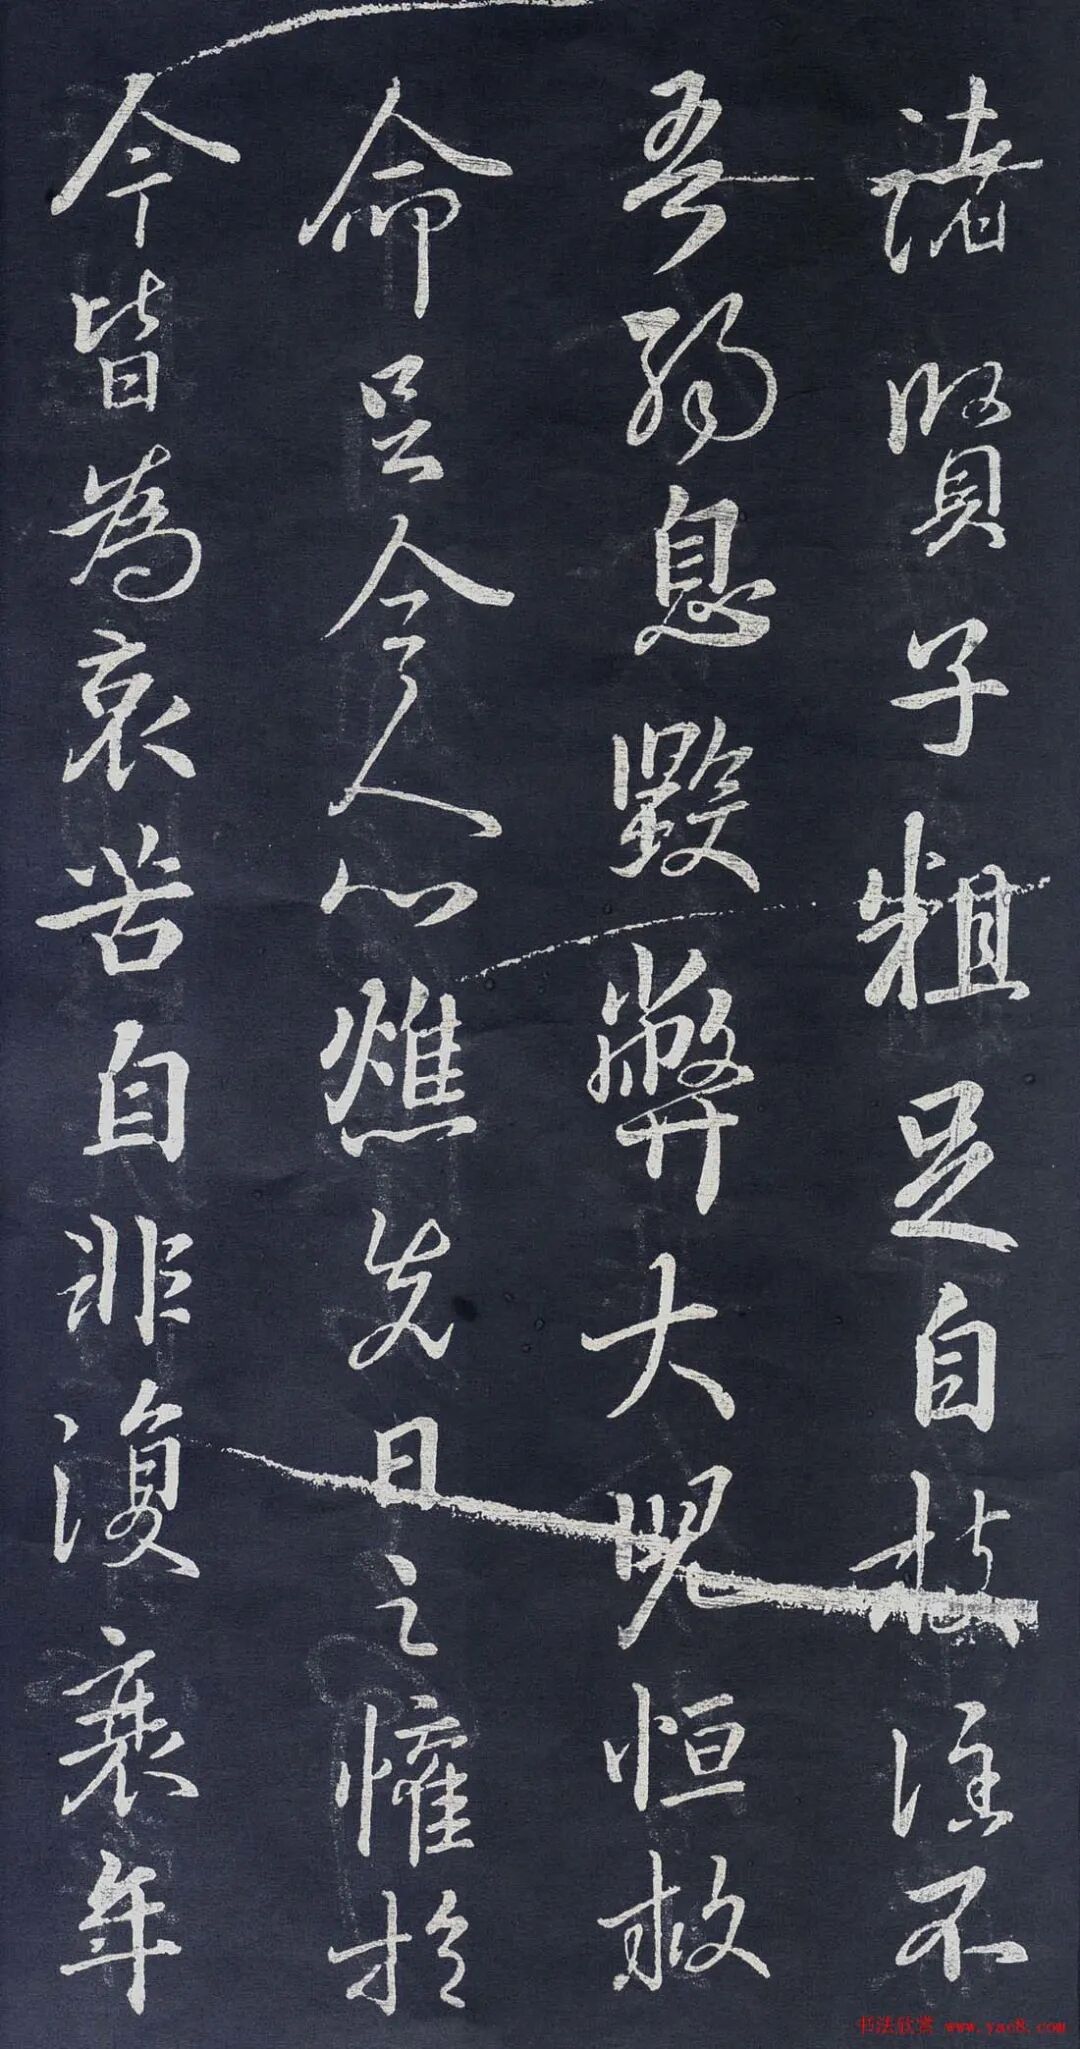 諸賢子粗足自不
吾弱息毀弊大恒救
命足令人心燋先日之懽於
今皆為哀苦自非復衰年
书法欣赏 www.yac8.com